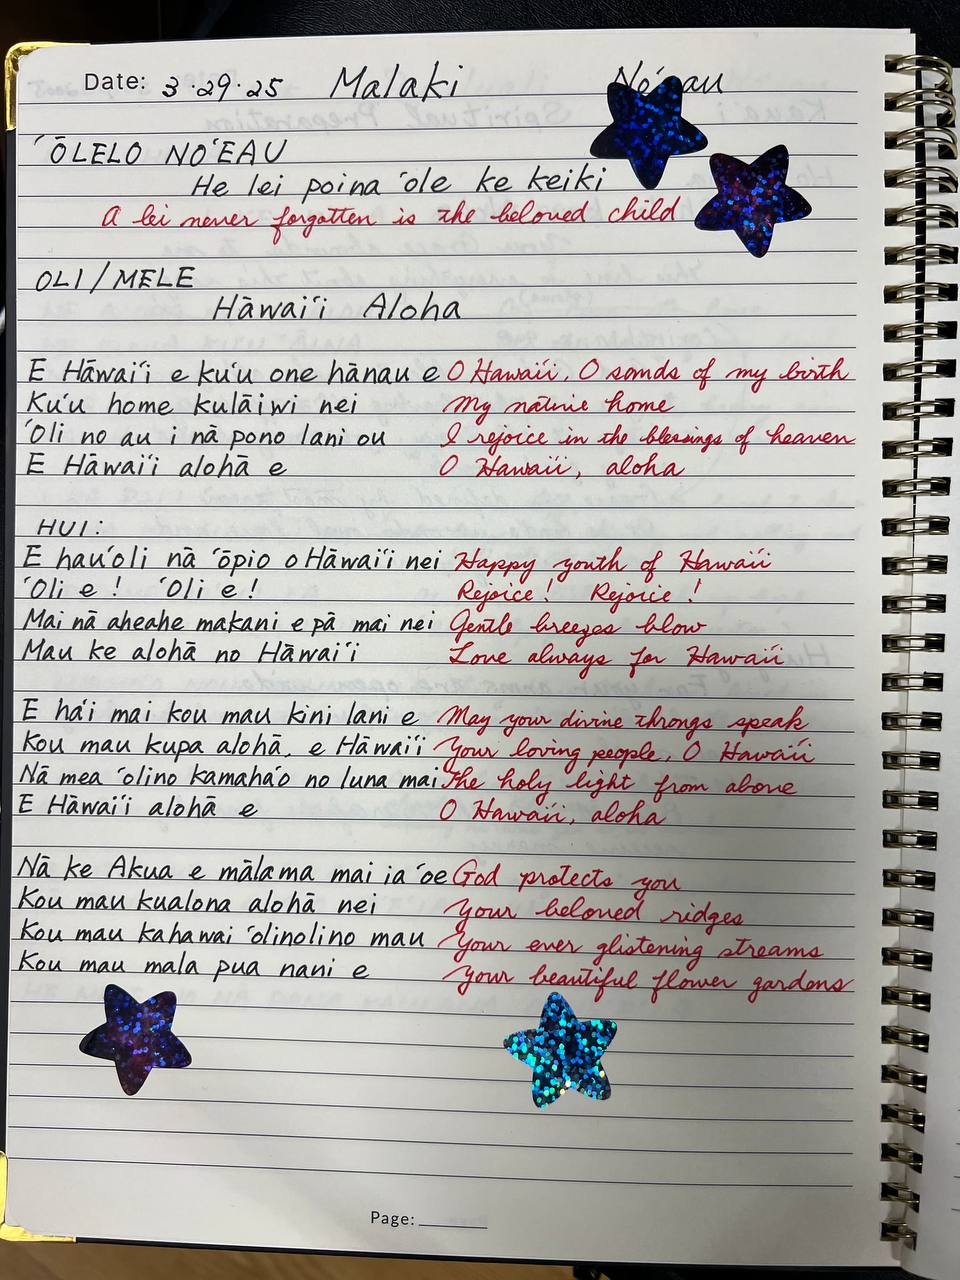 Date: 3.29.25 Malaki
ʻŌLELO NOʻEAU
He lei poina ʻole ke keiki
A lei never forgotten is the beloved child
OLI/MELE
Hāwaiʻi Aloha
E Hāwaiʻi e kuʻu one hānau e O Hawaiʻi, O sands of my birth
Kuʻu home kulāiwi nei My native home
ʻOli no au i nā pono lani ou I rejoice in the blessings of heaven
E Hāwaiʻi alohā e O Hawaiʻi, aloha
HUI:
E hauʻoli nā ʻōpio o Hāwaiʻi nei Happy youth of Hawaiʻi
ʻOli e! ʻOli e! Rejoice! Rejoice!
Mai nā aheahe makani e pā mai nei Gentle breezes blow
Mau ke alohā no Hāwaiʻi Love always for Hawaiʻi
E haʻi mai kou mau kini lani e May your divine throngs speak
Kou mau kupa alohā, e Hāwaiʻi Your loving people, O Hawaiʻi
Nā mea ʻolino kamahaʻo no luna mai The holy light from above
E Hāwaiʻi alohā e O Hawaiʻi, aloha
Nā ke Akua e mālama mai ia ʻoe God protects you
Kou mau kualona alohā nei Your beloved ridges
Kou mau kahawai ʻolinolino mau Your ever glistening streams
Kou mau mala pua nani e Your beautiful flower gardens
Page: